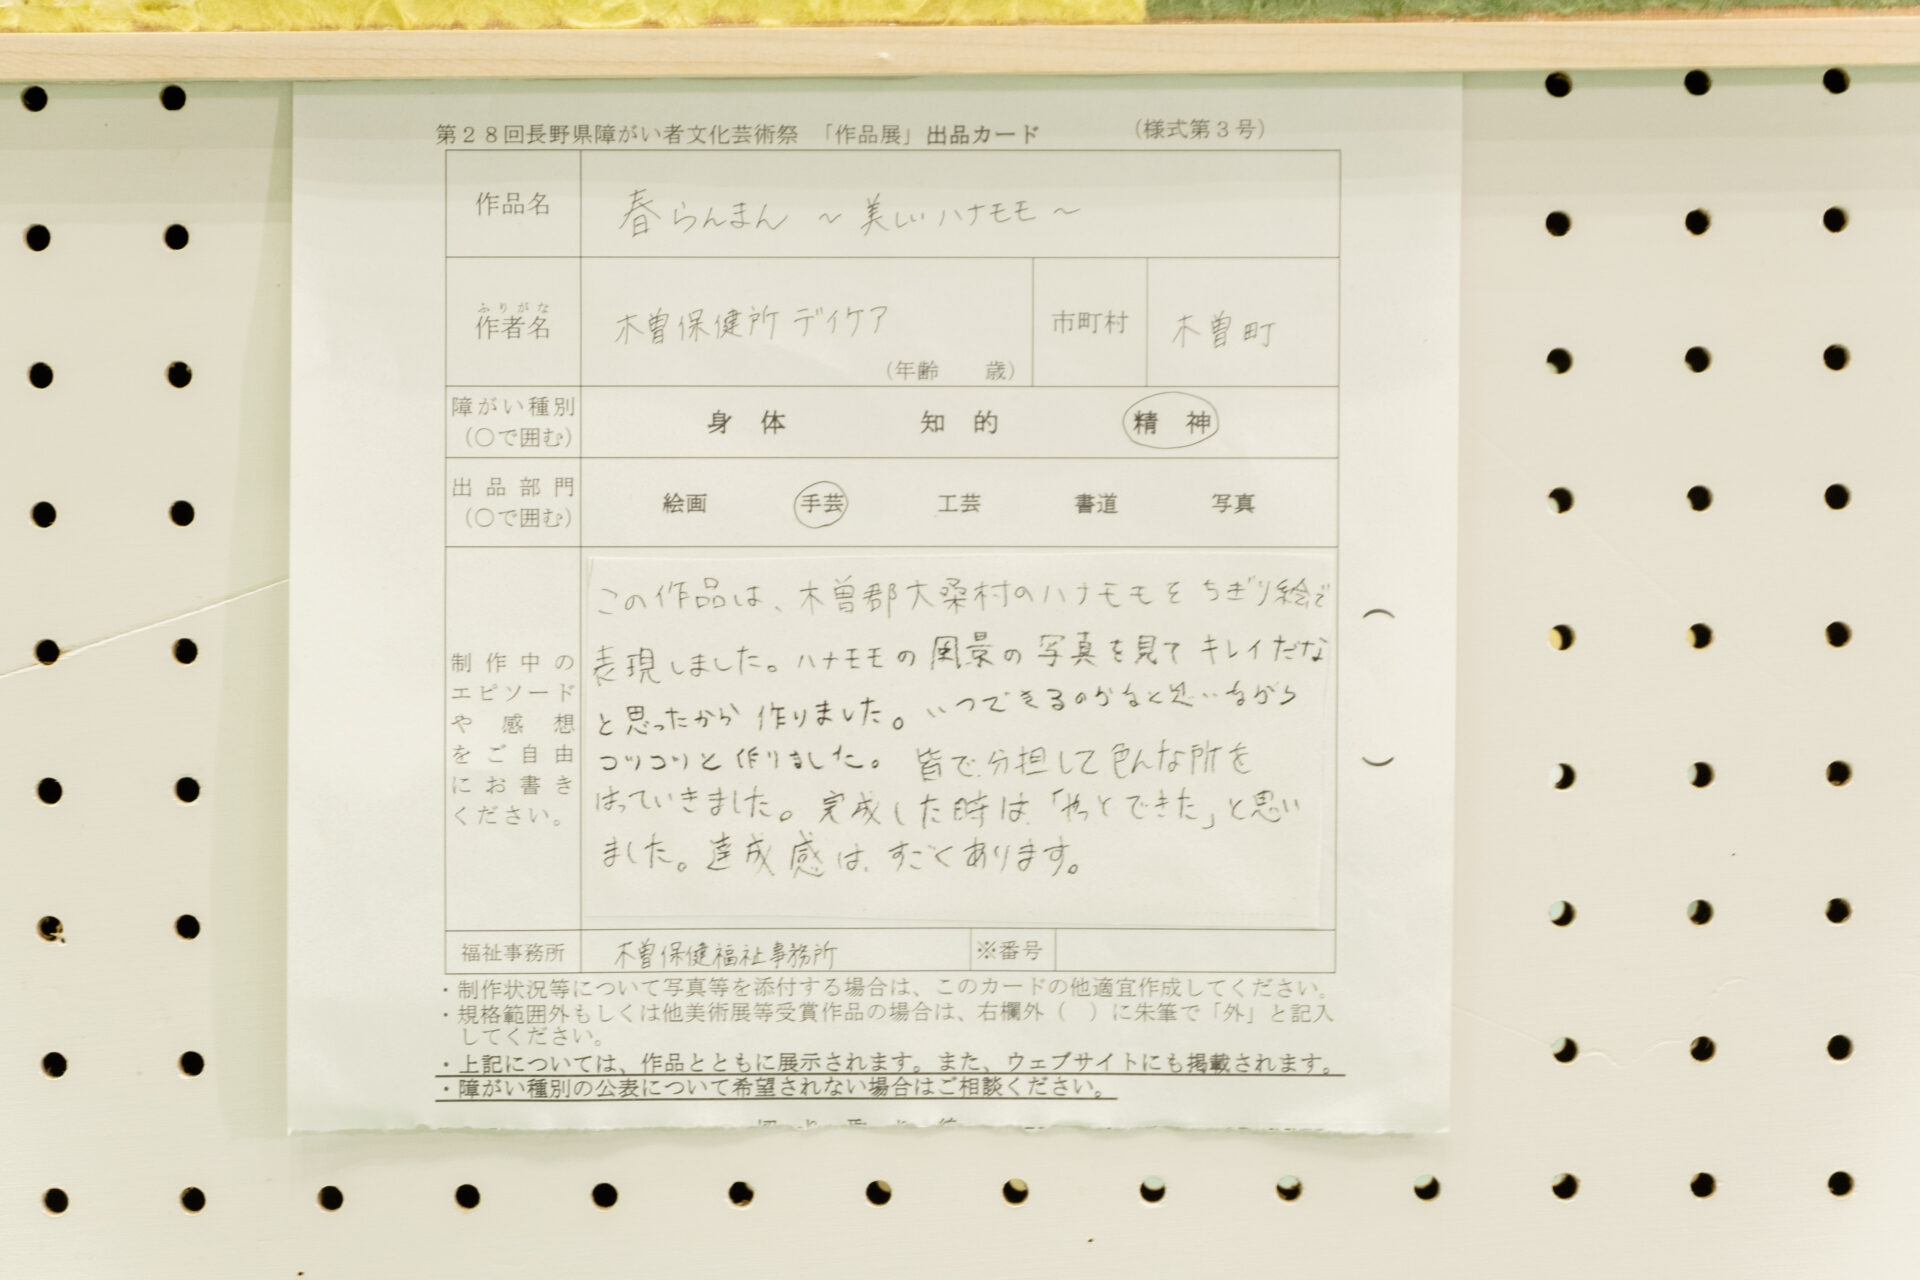 第28回長野県障がい者文化芸術祭 「作品展」出品カード (様式第3号)
作品名 春らんまん ~ 美しいハナモモ ~
ふりがな
作者名 木曽保健所デイケア 市町村 木曽町
(年齢 歳)
障がい種別 身体 知的 精神
(○で囲む)
出品部門 絵画 手芸 工芸 書道 写真
(○で囲む)
制作中のエピソードや感想をご自由にお書きください。
この作品は、木曽郡大桑村のハナモモをちぎり絵で
表現しました。ハナモモの風景の写真を見てキレイだな
と思ったから作りました。いつできるのかなと思いながら
コツコツと作りました。皆で分担して色んな所を
はっていきました。完成した時は「やっとできた」と思い
ました。達成感は、すごくあります。
( )
福祉事務所 木曽保健福祉事務所 ※番号
・制作状況等について写真等を添付する場合は、このカードの他適宜作成してください。
・規格範囲外もしくは他美術展等受賞作品の場合は、右欄外( )に朱筆で「外」と記入
してください。
・上記については、作品とともに展示されます。また、ウェブサイトにも掲載されます。
・障がい種別の公表について希望されない場合はご相談ください。